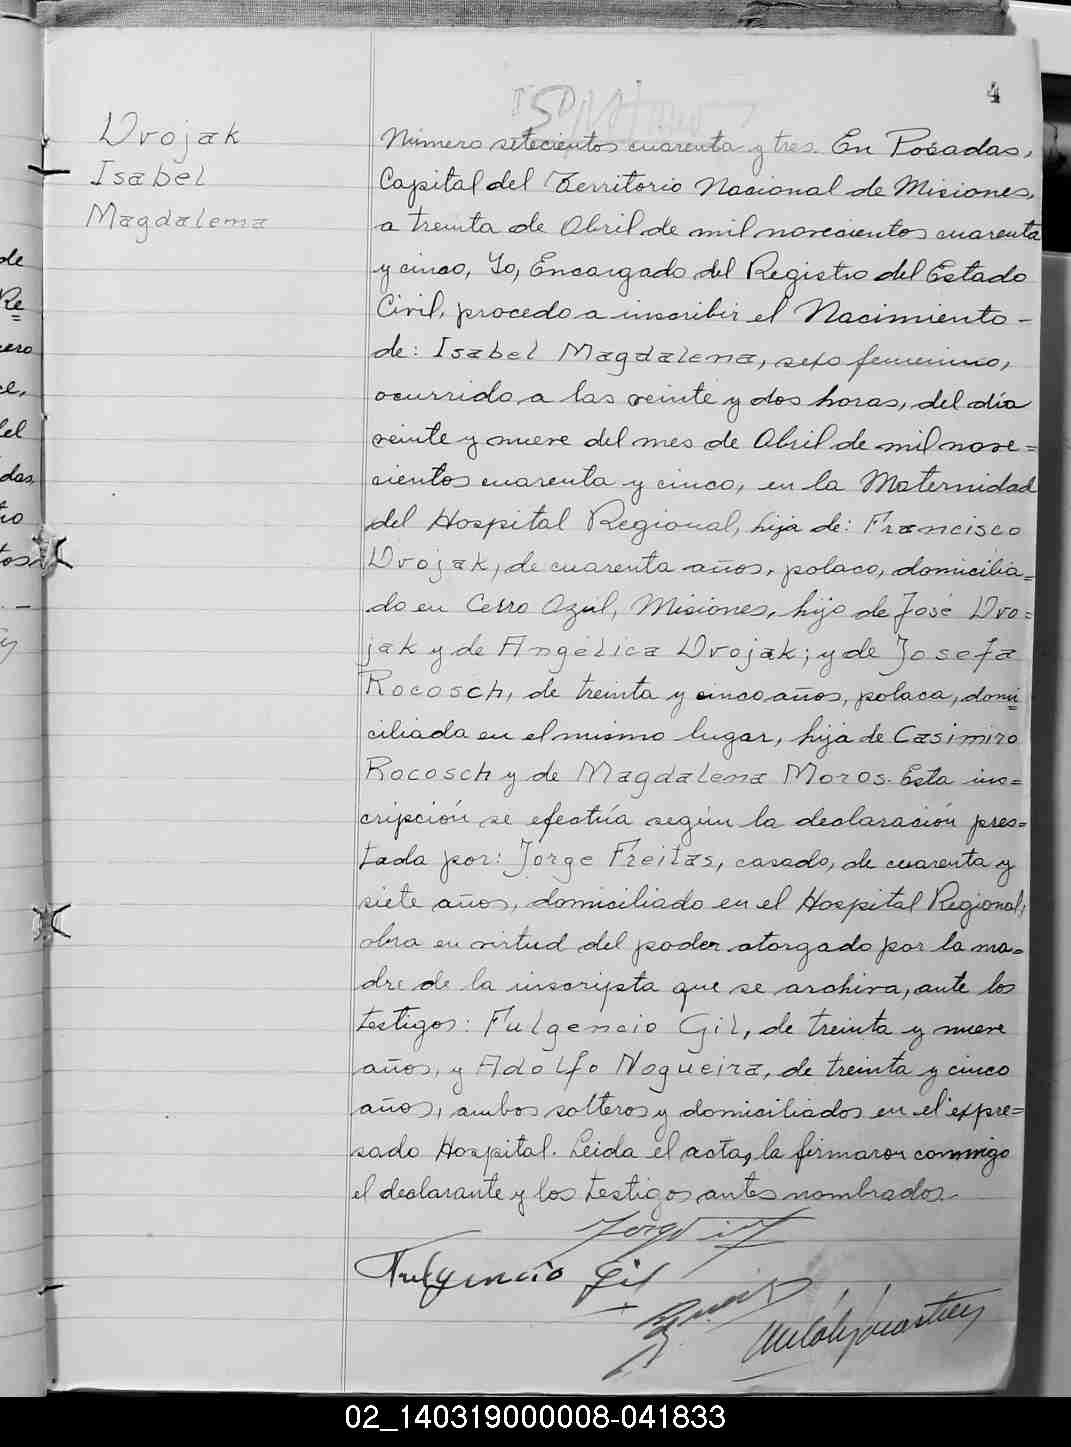 4
Dvojak
Isabel
Magdalema
Número setecientos cuarenta y tres. En Posadas,
Capital del Territorio Nacional de Misiones,
a treinta de Abril de mil novecientos cuarenta
y cinco, Yo, Encargado del Registro del Estado
Civil, procedo a inscribir el Nacimiento -
de: Isabel Magdalema, sexo femenino,
ocurrido a las veinte y dos horas, del día
veinte y nueve del mes de Abril de mil nove=
cientos cuarenta y cinco, en la Maternidad
del Hospital Regional, hija de: Francisco
Dvojak, de cuarenta años, polaco, domicilia=
do en Cerro Azul, Misiones, hijo de José Dvo=
jak y de Angélica Dvojak; y de Josefa
Rocosch, de treinta y cinco años, polaca, domi=
ciliada en el mismo lugar, hija de Casimiro
Rocosch y de Magdalema Moros. Esta ins=
cripción se efectúa según la declaración pres=
tada por: Jorge Freitas, casado, de cuarenta y
siete años, domiciliado en el Hospital Regional,
obra en virtud del poder otorgado por la ma=
dre de la inscripta que se archiva, ante los
testigos: Fulgencio Gil, de treinta y nueve
años, y Adolfo Nogueira, de treinta y cinco
años, ambos solteros y domiciliados en el expre=
sado Hospital. Leida el acta, la firmaron conmigo
el declarante y los testigos antes nombrados.-
Fulgencio Gil
de
Re=
ero
ce,
del
das,
tro
tos
02_140319000008-041833